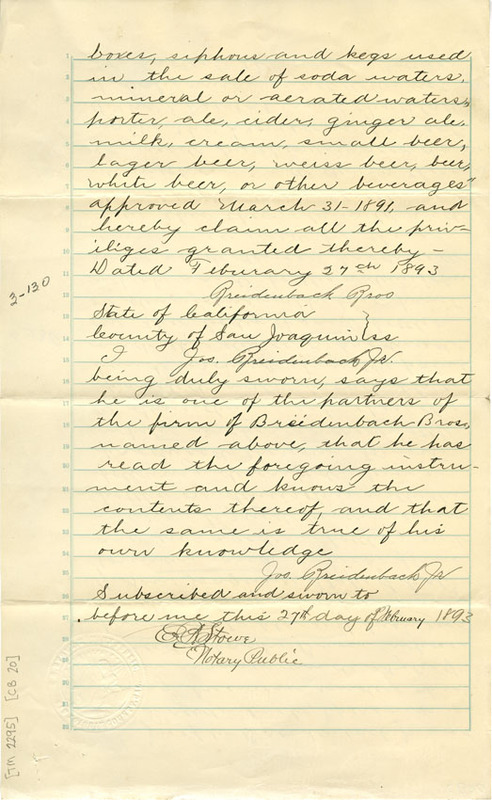 boxes, siphons and kegs used
in the sale of soda waters,
mineral or aerated waters,
porter, ale, cider, ginger ale,
milk, cream, small beer,
lager beer, weiss beer, beer,
white beer, or other beverages"
approved March 31-1891, and
hereby claim all the priv-
iliges granted thereby -
Dated Feburary 27th 1893
Breidenbach Bros
State of California
County of San Joaquin } ss
I Jos. Breidenbach Jr
being duly sworn, says that
he is one of the partners of
the firm of Breidenbach Bros,
named above, that he has
read the foregoing instru-
ment and knows the
contents thereof, and that
the same is true of his
own knowledge
Jos. Breidenbach Jr
Subscribed and sworn to
before me this 27th day of February 1893
Stowe
Notary Public
3-130
[TM 2295] [CB 20]